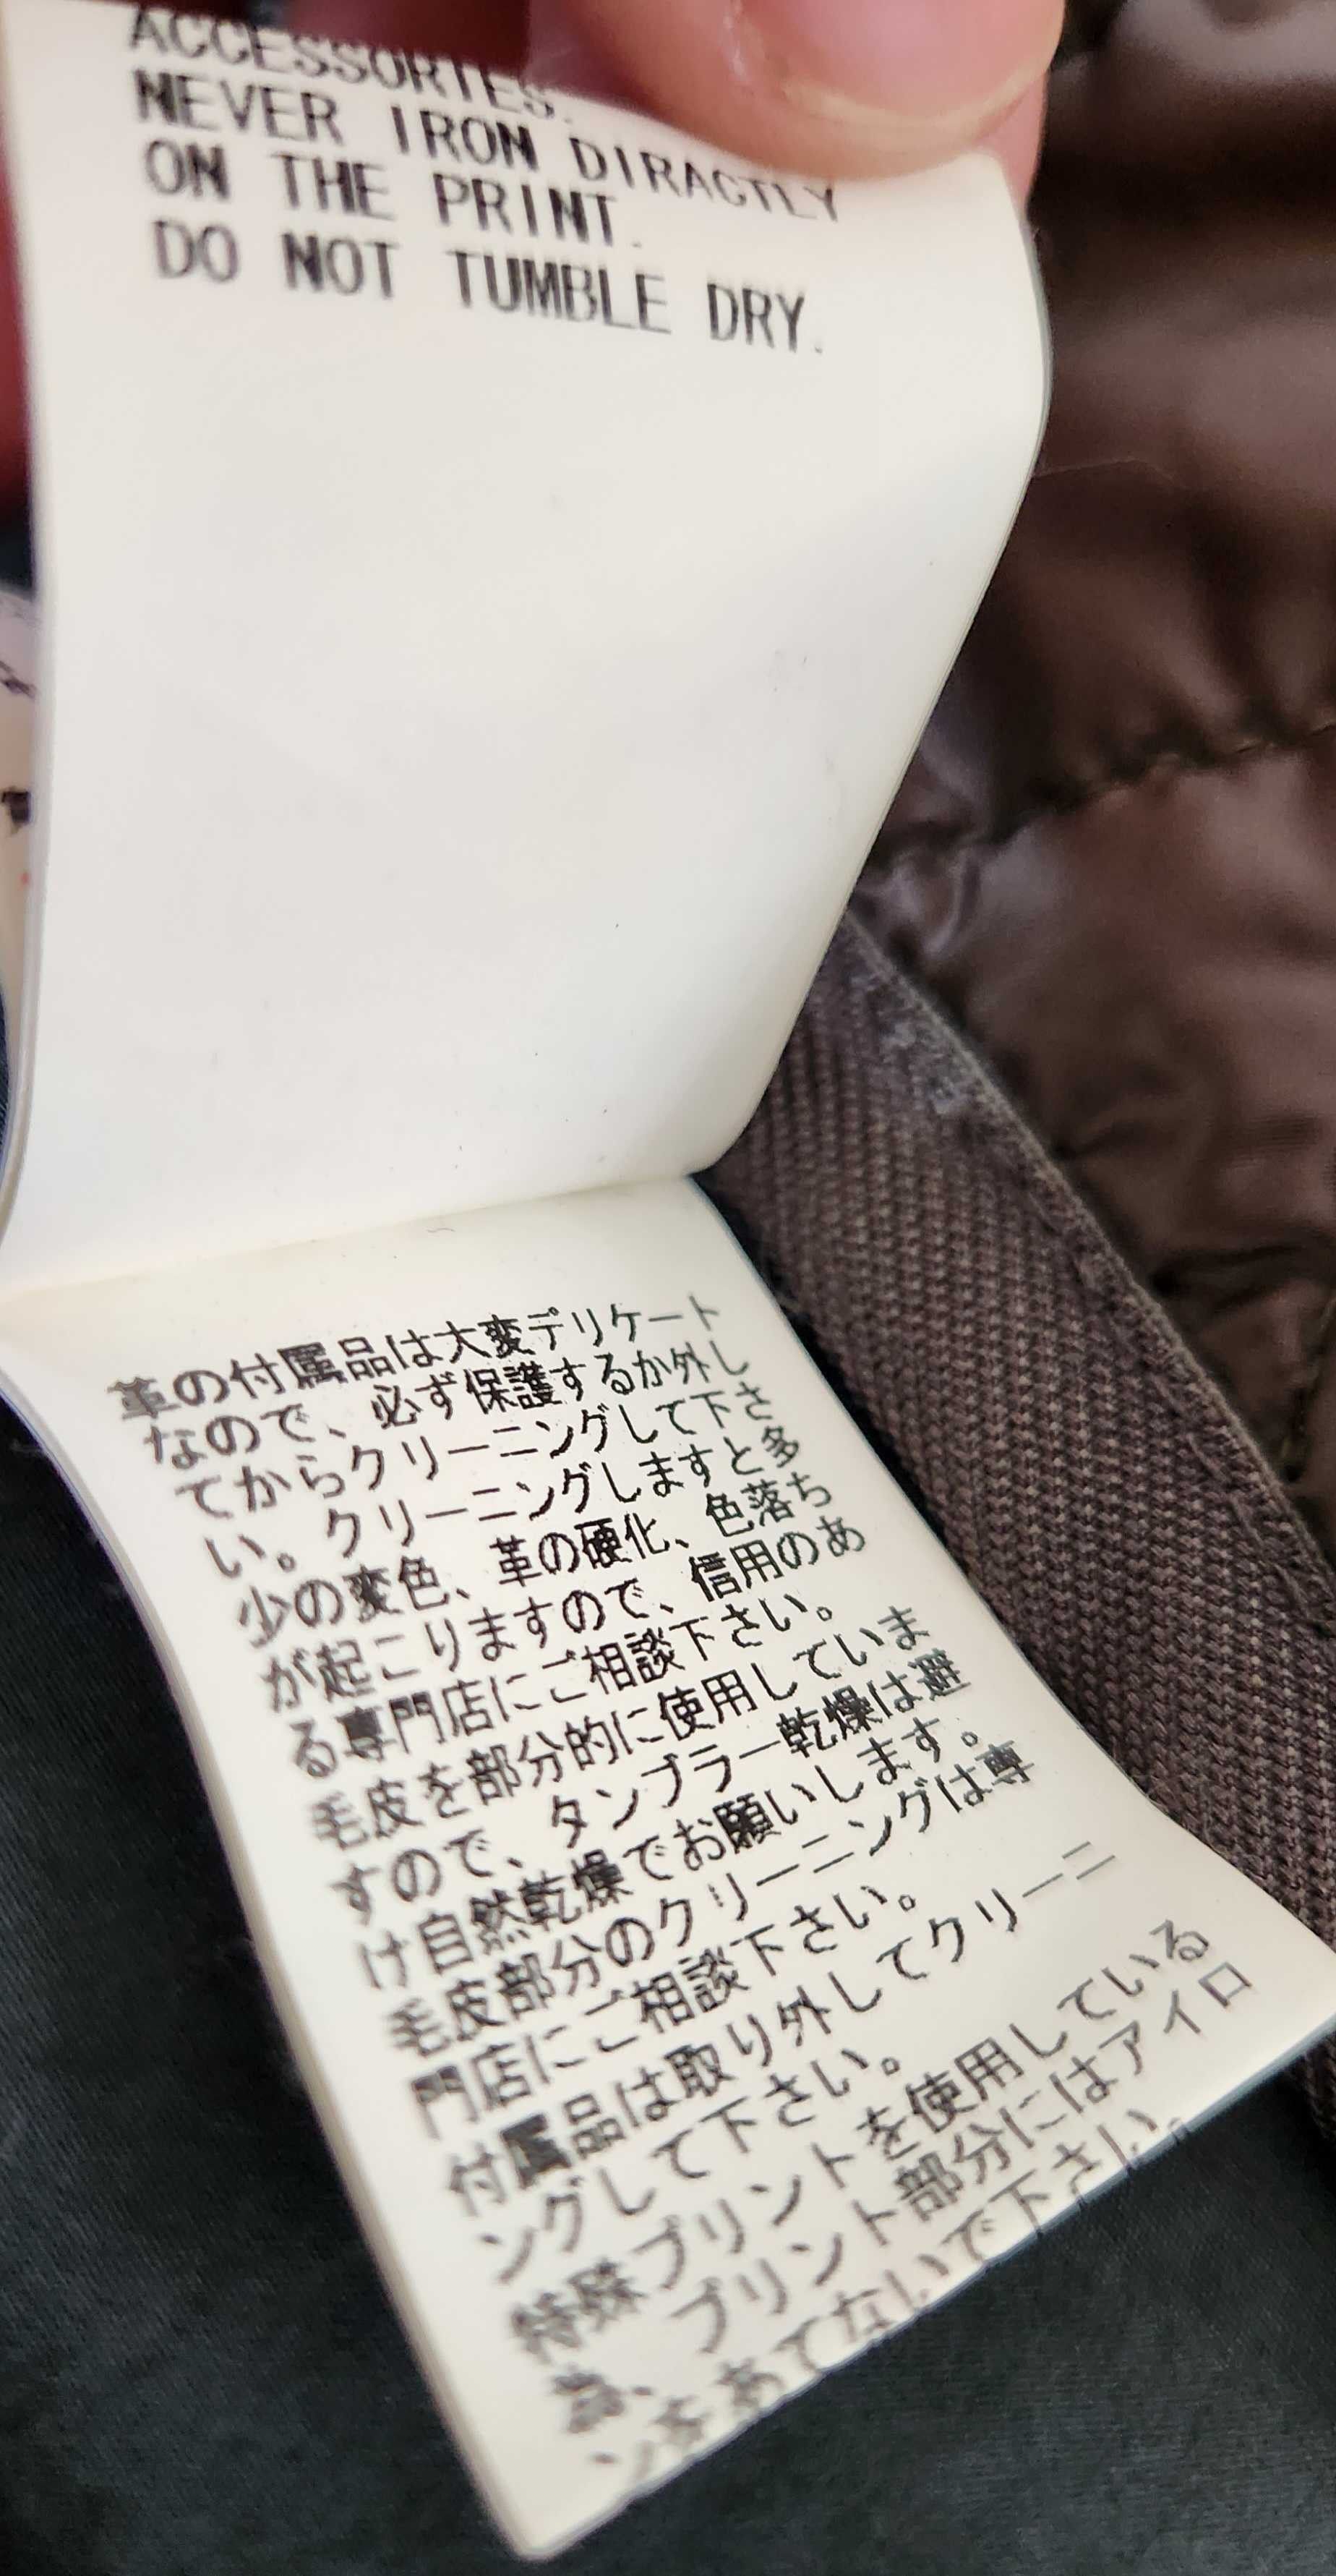 ACCESSORIES.
NEVER IRON DIRACTLY
ON THE PRINT.
DO NOT TUMBLE DRY.
革の付属品は大変デリケート
なので、必ず保護するか外し
てからクリーニングして下さ
い。クリーニングしますと多
少の変色、革の硬化、色落ち
が起こりますので、信用のあ
る専門店にご相談下さい。
毛皮を部分的に使用していま
すので、タンブラー乾燥は避
け自然乾燥でお願いします。
毛皮部分のクリーニングは専
門店にご相談下さい。
付属品は取り外してクリーニ
ングして下さい。
特殊プリントを使用している
為、プリント部分にはアイロ
ンをあてないで下さい。